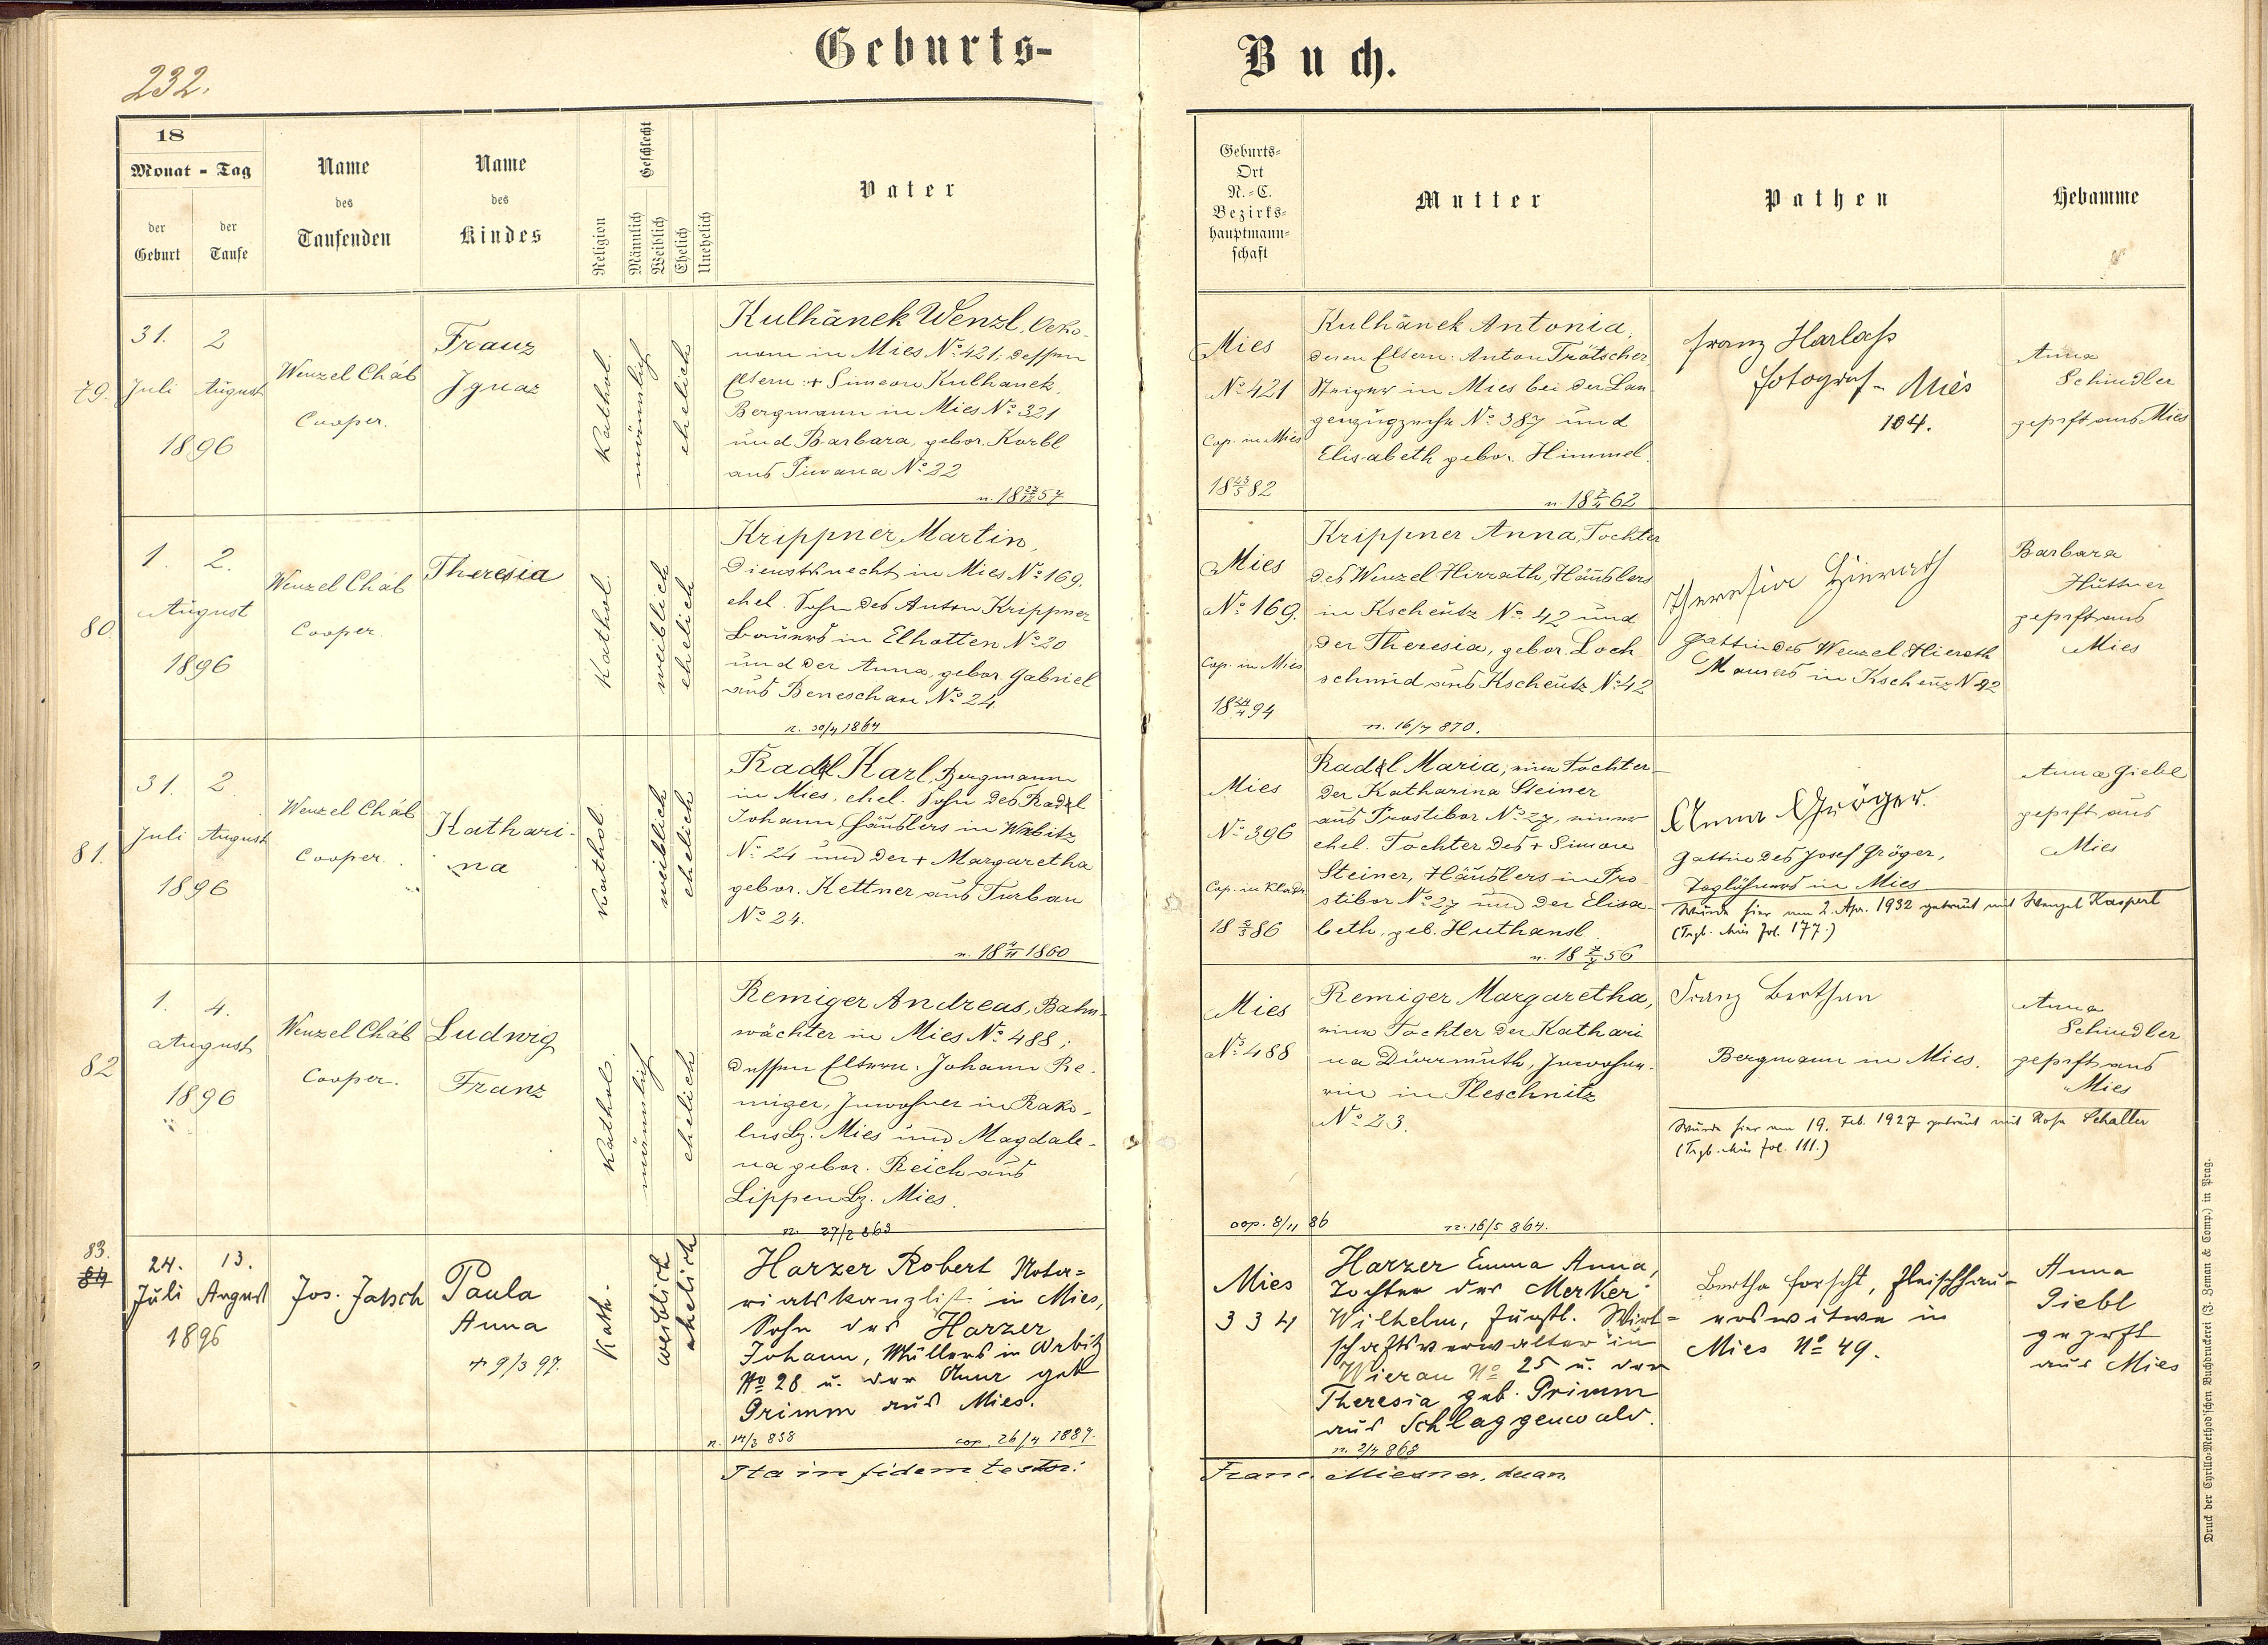 Geburts-
Buch.
232.
18
Monat - Tag
der Geburt
der Taufe
Name
des
Taufenden
Name
des
Kindes
Religion
Geschlecht
Männlich
Weiblich
Ehelich
Unehelich
Vater
Geburts-
Ort
N.-C.
Bezirks-
hauptmann-
schaft
Mutter
Pathen
Hebamme
79.
31. 2
Juli August
1896
Wenzel Cháb
Cooper.
Franz
Ignaz
Kathol.
männlich
ehelich
Kulhánek Wenzl, Oeko-
nom in Mies No 421; dessen
Eltern: + Simeon Kulhanek,
Bergmann in Mies No 321
und Barbara, gebor. Korbl
aus Piwana No 22
n. 18 27/12 57
Mies
No 421
Cop. in Mies
18 23/5 82
Kulhánek Antonia,
deren Eltern: Anton Trötscher,
Steiger in Mies bei der Lan-
genzugzeche No 387 und
Elisabeth gebor. Himmel.
n. 18 7/4 62
Franz Harlass
Fotograf - Mies
104.
Anna
Schindler
geprft aus Mies
80.
1. 2.
August
1896
Wenzel Cháb
Cooper.
Theresia
Kathol.
weiblich
ehelich
Krippner Martin,
Dienstknecht in Mies No 169.
ehel. Sohn des Anton Krippner
Bauers in Elhotten No 20
und der Anna, gebor. Gabriel
aus Beneschau No 24.
n. 30/4 1864
Mies
No 169.
Cop. in Mies
18 24/4 94
Krippner Anna, Tochter
des Wenzel Hirrath, Häuslers
in Kscheutz No 42 und
der Theresia, gebor. Loch-
schmid aus Kscheutz No 42
n. 16/7 870.
Theresia Hinrath
Gattin des Wenzel Hierath
Maurers in Kscheuz N 42
Barbara
Hüttner
geprft aus
Mies
81.
31. 2.
Juli August
1896
Wenzel Cháb
Cooper.
Kathari-
na
Kathol.
weiblich
ehelich
Radl Karl, Bergmann
in Mies, ehel. Sohn des Radl
Johann, Häuslers in Wrbitz
No 24 und der + Margaretha
gebor. Kettner aus Turban
No 24.
n. 18 4/11 1860
Mies
No 396
Cop. in Kladr.
18 2/3 86
Radl Maria, eine Tochter
der Katharina Steiner
aus Prostibor No 27, einer
ehel. Tochter des + Simon
Steiner, Häuslers in Pro-
stibor No 27 und der Elisa-
beth, geb. Huthansl
n. 18 7/7 56
Anna Gröger.
Gattin des Josef Gröger,
Taglöhners in Mies
Wurde hier am 2. Apr. 1932 getraut mit Wenzel Kaspert
(Trgb. Mies fol. 177.)
Anna Giebl
geprft aus
Mies
82
1. 4.
August
1896
Wenzel Cháb
Cooper.
Ludwig
Franz
Kathol.
männlich
ehelich
Remiger Andreas, Bahn-
wächter in Mies No 488;
dessen Eltern: Johann Re-
miger, Inwohner in Rako-
lus Bz. Mies und Magdale-
na gebor. Reich aus
Lippen Bz. Mies.
n. 27/2 863
Mies
No 488
cop. 8/11 86
Remiger Margaretha,
eine Tochter der Kathari-
na Dürrmuth, Inwohne-
rin in Pleschnitz
No 23.
n. 16/5 864.
Franz Berthan
Bergmann in Mies.
Wurde hier am 19. Feb. 1927 getraut mit Rosa Schaller
(Trgb. Mies fol. 111.)
Anna
Schindler
geprft aus
Mies
83.
84
24. 13.
Juli August
1896
Jos. Jatsch
Paula
Anna
+ 9/3 97.
Kath.
weiblich
ehelich
Harzer Robert Nota-
riatskanzlist in Mies,
Sohn des Harzer
Johann, Müllers in Wrbitz
No 28 u. der Anna geb
Grimm aus Mies.
n. 14/3 838 cop. 26/4 1887.
Mies
334
Harzer Emma Anna,
Tochter des Merker
Wilhelm, fürstl. Wirt-
schaftsverwalter in
Wierau No 25 u. der
Theresia geb. Primm
aus Schlaggenwald.
n. 2/4 868
Bertha Forscht, Fleischhau-
erswitwe in
Mies No 49.
Anna
Giebl
geprft
aus Mies
Ita in fidem testor:
Franc. Miesner, decan.
Druck der Cyrillo-Method'schen Buchdruckerei (J. Zeman & Comp.) in Prag.